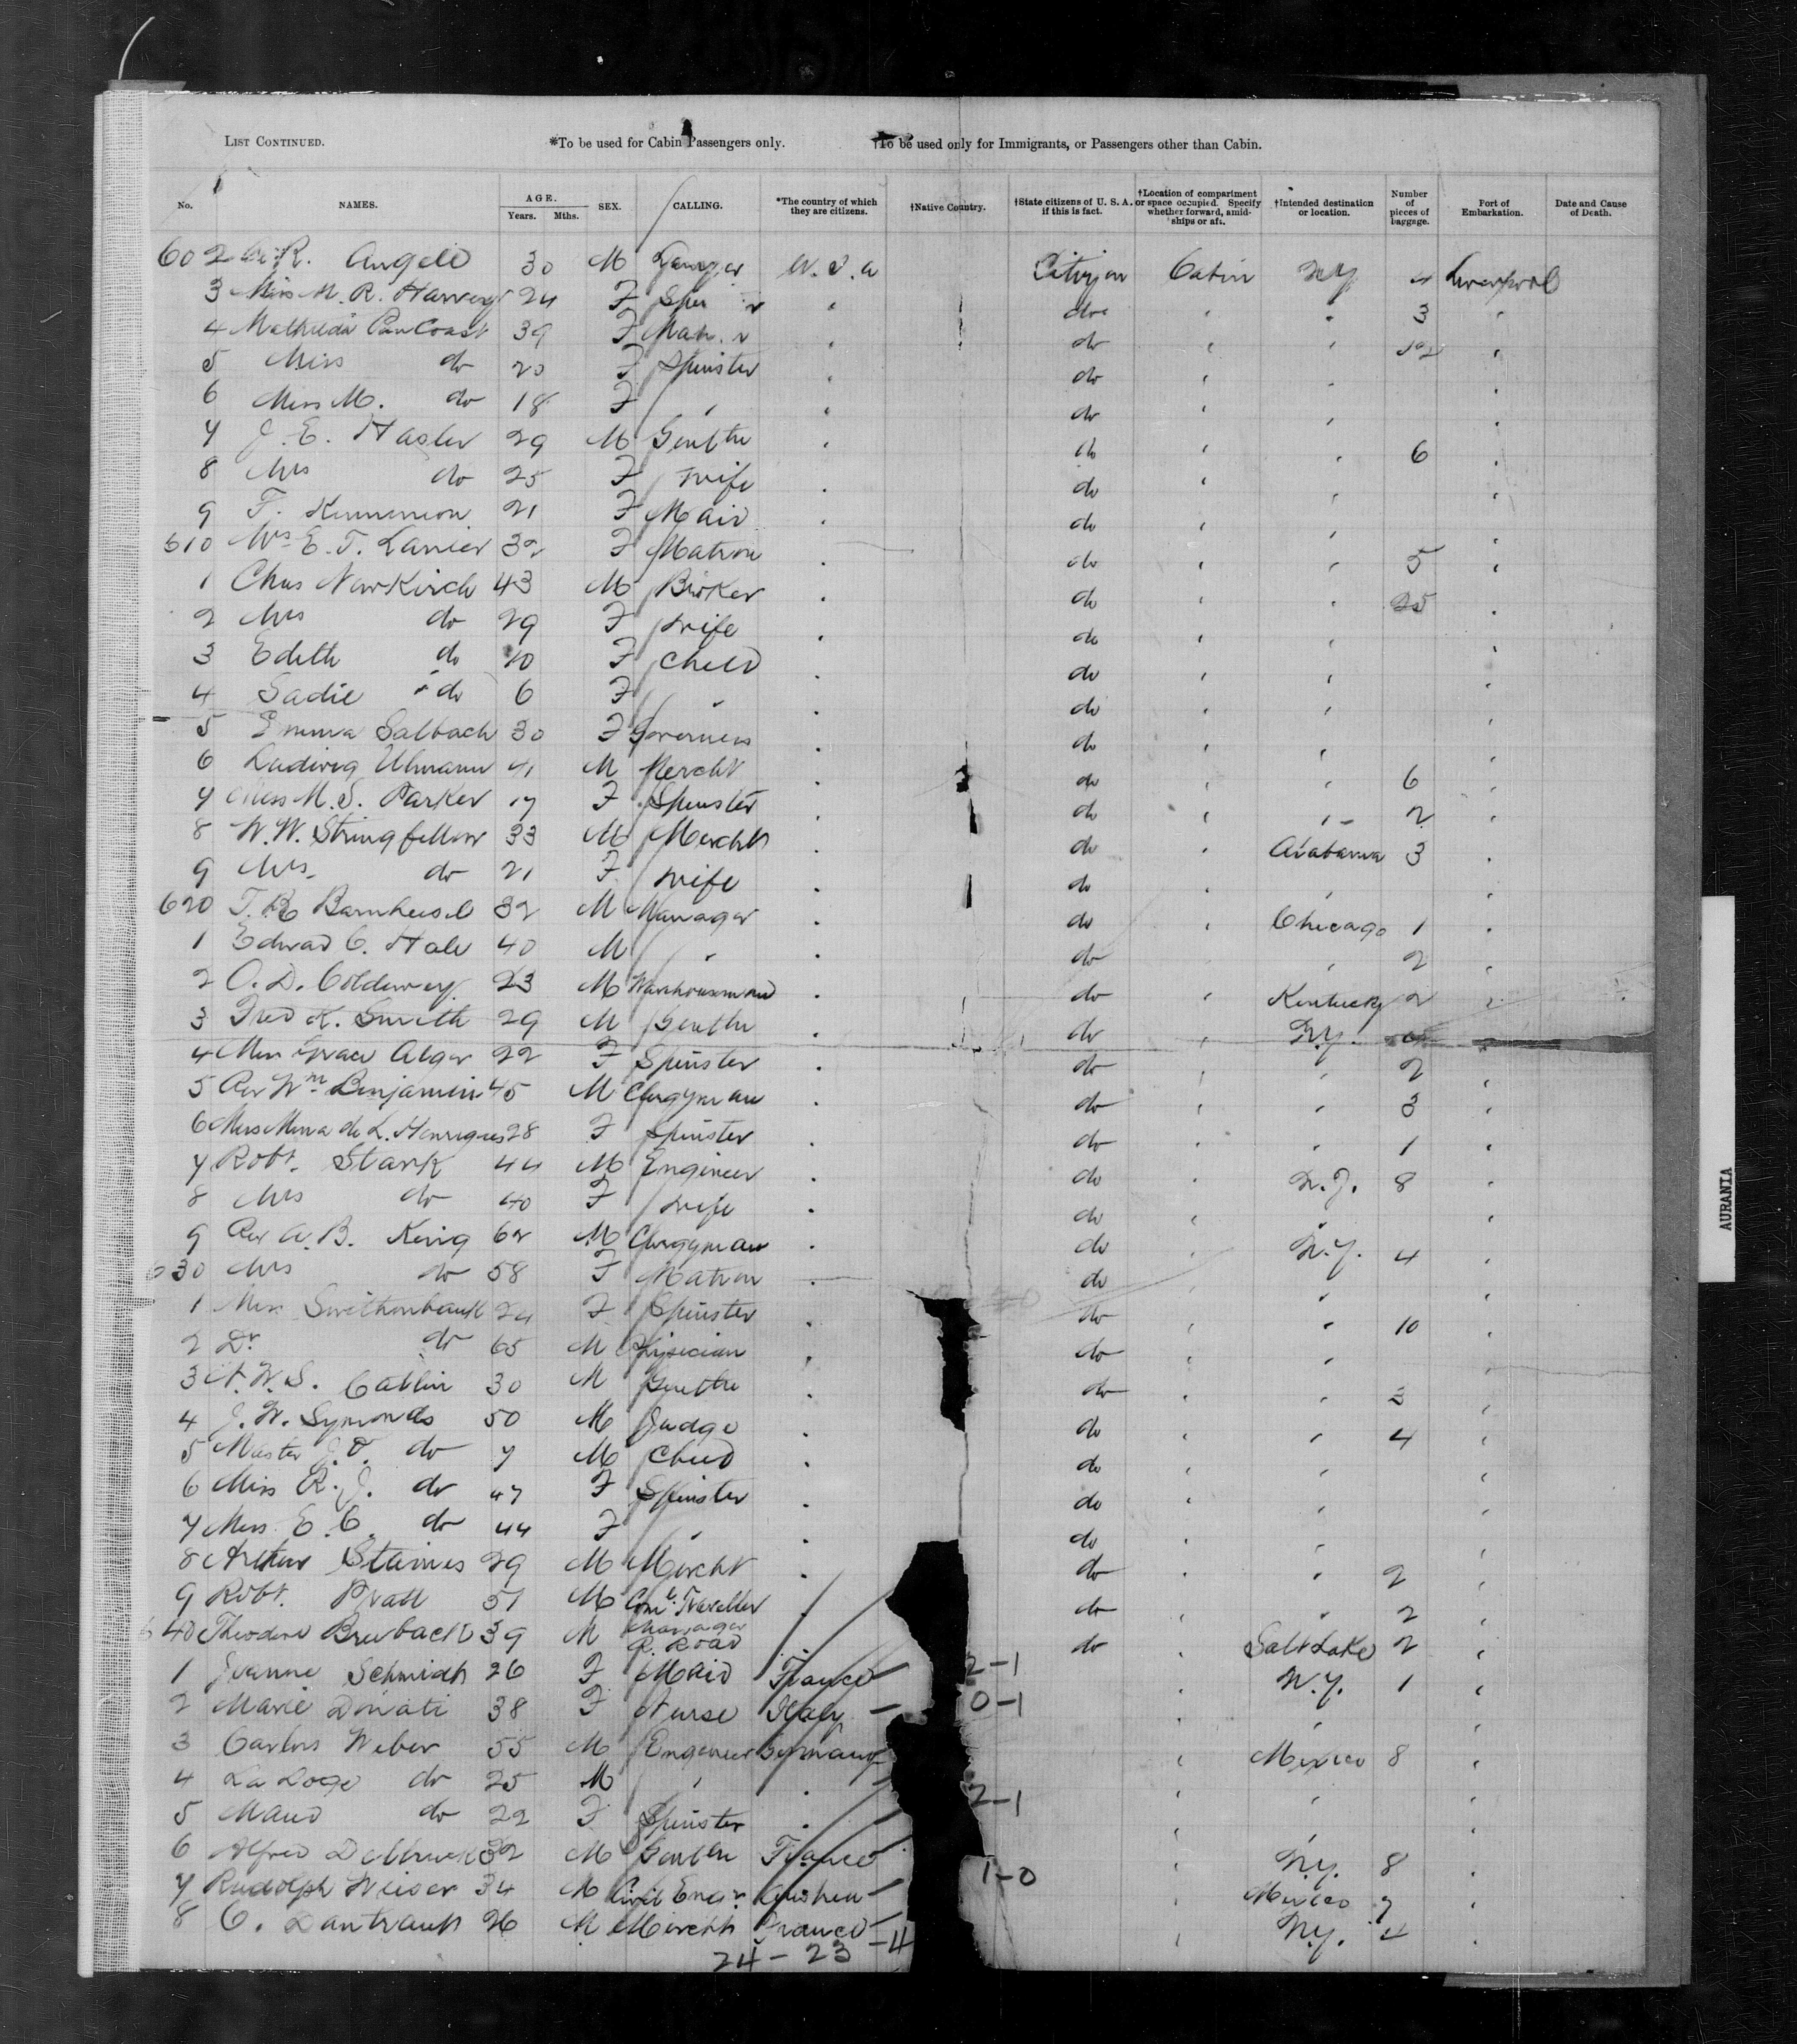 LIST CONTINUED. *To be used for Cabin Passengers only. †To be used only for Immigrants, or Passengers other than Cabin.
No. NAMES. AGE. Years. Mths. SEX. CALLING. *The country of which they are citizens. †Native Country. †State citizens of U. S. A. if this is fact. †Location of compartment or space occupied. Specify whether forward, amidships or aft. †Intended destination or location. Number of pieces of baggage. Port of Embarkation. Date and Cause of Death.
602 R. Angell 30 M U.S.A Cabin NY 4 Liverpool
3 Miss M. R. Harvey 24 F " do " " 3 "
4 Mathilda PanCoast 39 F " do " " "
5 Miss do 20 F Spinster " do " " "
6 Miss M. do 18 F " " do " " "
7 J. E. Hasler 29 M " do " " 6 "
8 Mrs do 25 F Wife " do " " "
9 F. 21 F Maid " do " " "
610 Mrs E. T. Lanier 32 F Matron " do " " 5 "
1 Chas NewKirch 43 M Broker " do " " 25 "
2 Mrs do 29 F Wife " do " " "
3 Edith do 10 F Child " do " " "
4 Sadie do 6 F " " do " " "
5 Emma Salbach 30 F Governess " do " " "
6 Ludwig Ulmann 41 M Mercht " do " " 6 "
7 Miss M. S. Parker 17 F Spinster " do " " 2 "
8 W. W. Stringfellow 33 M Mercht " do " Alabama 3 "
9 Mrs do 21 F Wife " do " " "
620 T. R. Barnheisel 32 M Manager " do " Chicago 1 "
1 Edward C. Hale 40 M " " do " 2 "
2 O. D. Coldewey 23 M Warehouseman " do " Kentucky 2 "
3 Fred K. Smith 29 M " do " N.Y. "
4 Miss Grace Alger 22 F Spinster " do " " 2 "
5 Rev Wm Benjamin 45 M Clergyman " do " " 3 "
6 Miss Mina de L. Henriques 28 F Spinster " do " " 1 "
7 Robt. Stark 44 M Engineer " do " N.J. 8 "
8 Mrs do 40 F Wife " do " " "
9 Rev A. B. King 62 M Clergyman " do " N.Y. 4 "
630 Mrs do 58 F Matron " do " " "
1 Miss 24 F Spinster " do " " 10 "
2 Dr do 65 M " do " " "
3 W. S. Catlin 30 M " do " " 3 "
4 J. W. Symonds 50 M Judge " do " " 4 "
5 Master do 7 M Child " do " " "
6 Miss R. J. do 47 F Spinster " do " " "
7 Miss E. C. do 44 F " " do " " "
8 Arthur Staines 29 M Mercht " do " " 2 "
9 Robt. Pratt 51 M Coml. Traveller " do " " 2 "
640 Theodore 39 M Manager R. Road do " Salt Lake 2 "
1 Jeanne Schmidt 26 F Maid France 2-1 " N.Y. 1 "
2 Marie Donati 38 F Nurse Italy 0-1 " " "
3 Carlos Weber 55 M Engineer Germany " Mexico 8 "
4 do 25 M " " 2-1 " " "
5 Maud do 22 F Spinster " " " "
6 Alfred 32 M France 1-0 " N.Y. 8 "
7 Rudolph Wieser 34 M Civil Engr " Mexico 7
8 C. 26 M Mercht France -4 " N.Y. 4 "
24-23
AURANIA